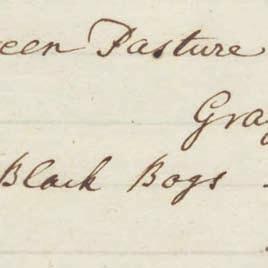 een Pasture
Gra
Black Bogs